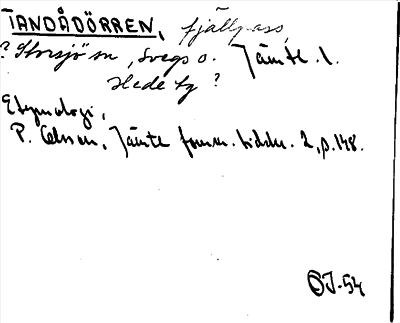 TANDÅDÖRREN, fjällpass,
? Storsjö sn, Svegs o. Jämtl. l.
Hede tg ?
Etymologi,
P. Olsson, Jämtl. fornm. tidskr. 2, p. 148.
OJ-54